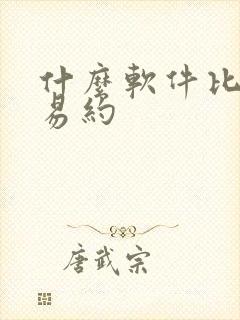 什麼軟件比
易約
唐武宗